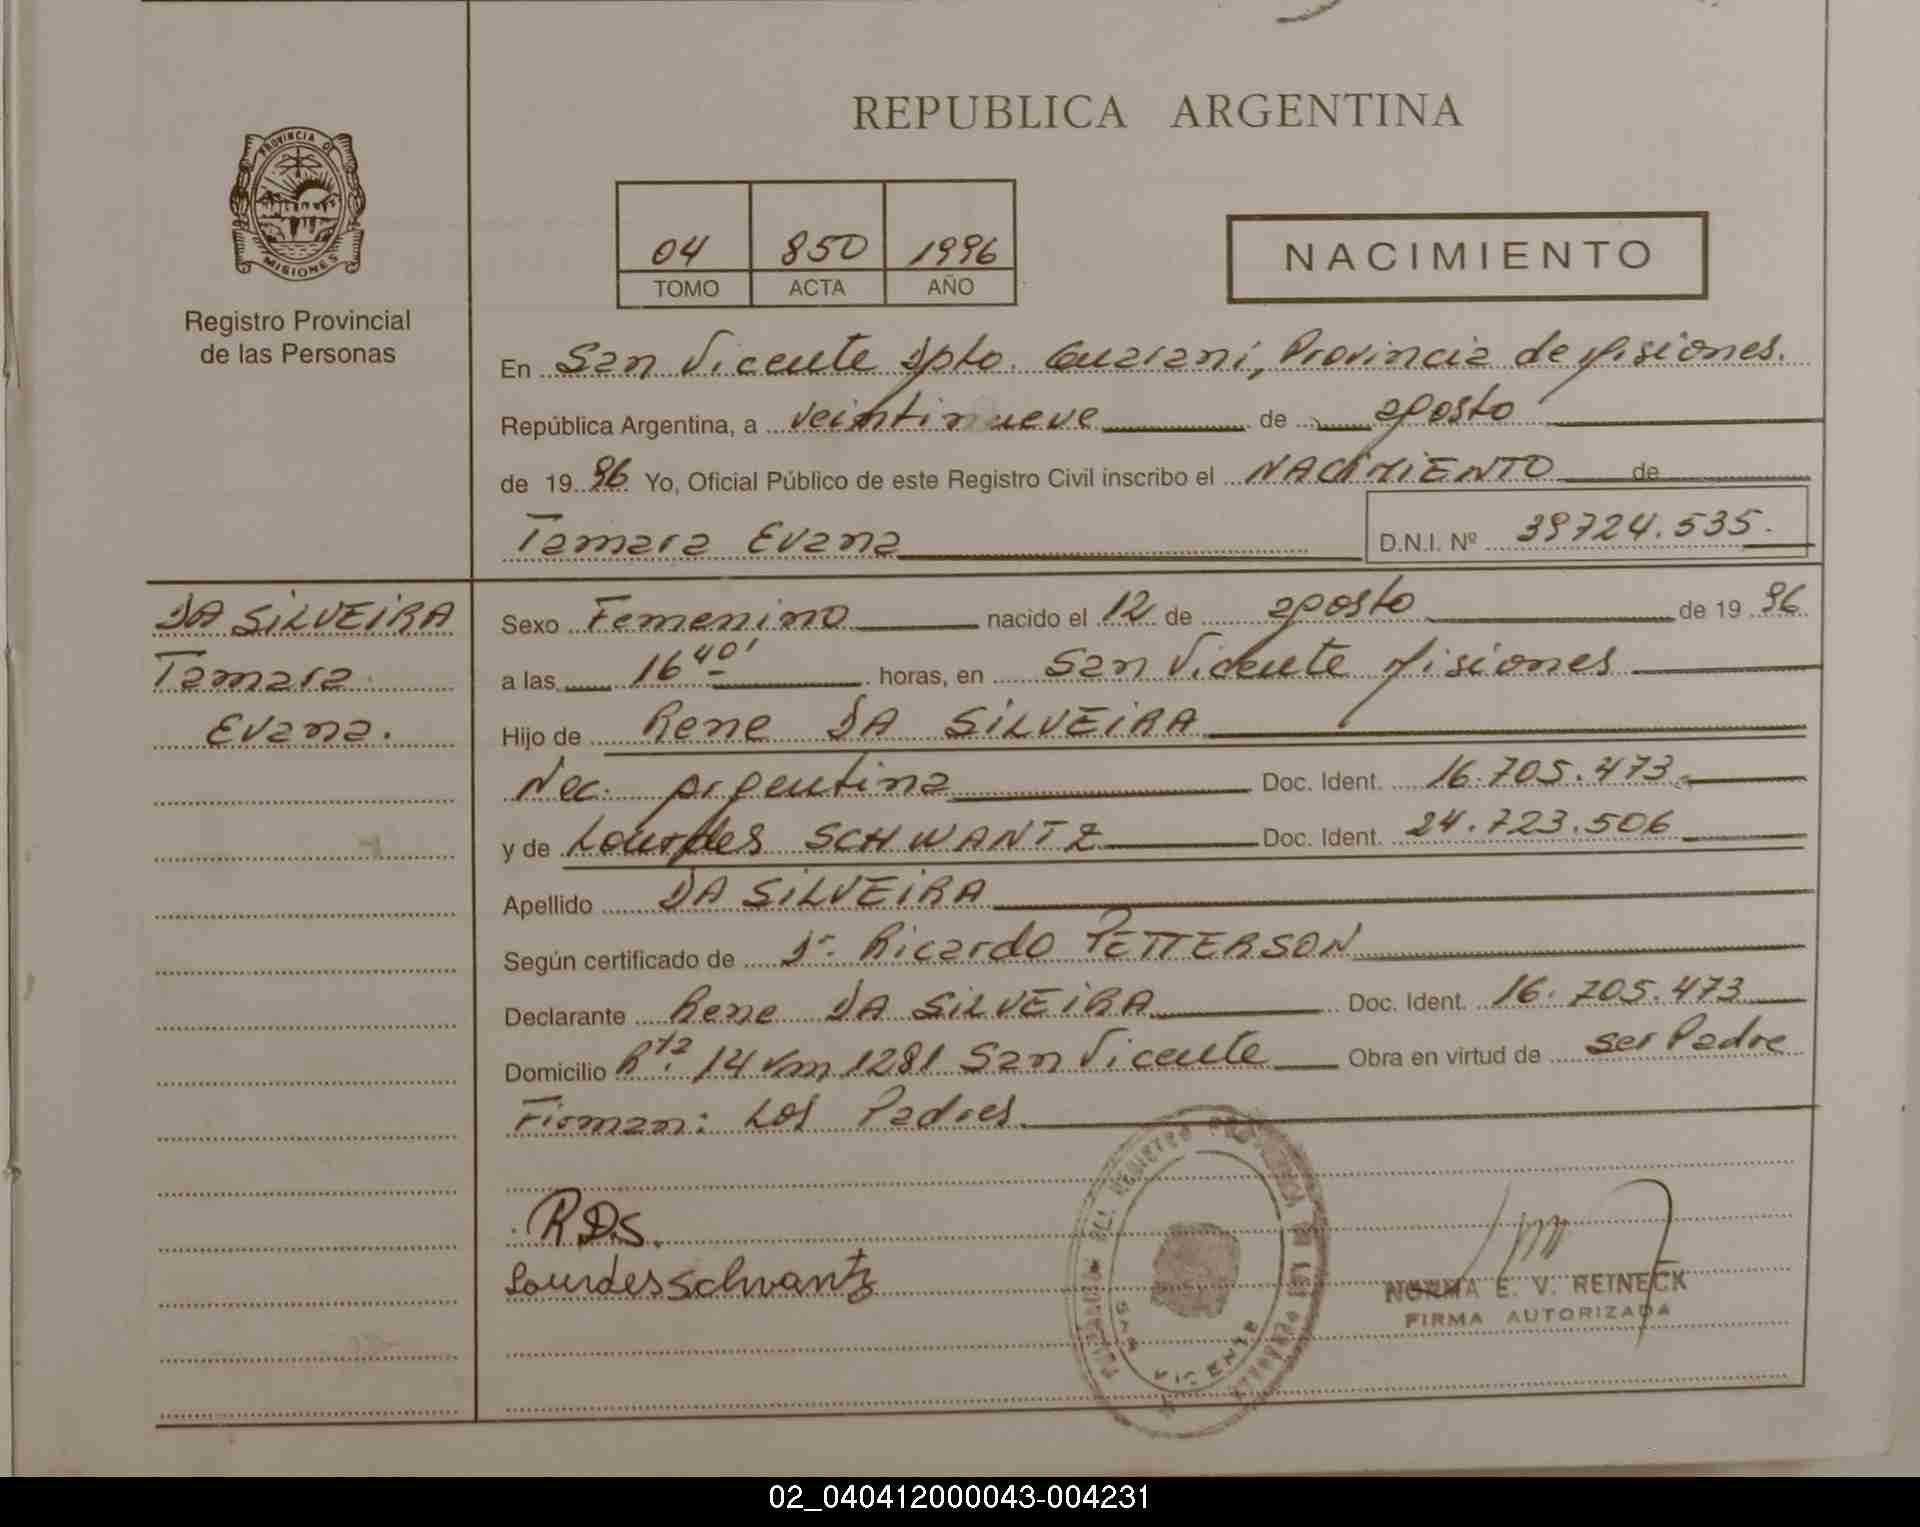 REPUBLICA ARGENTINA
PROVINCIA DE
MISIONES
Registro Provincial
de las Personas
04 850 1996
TOMO ACTA AÑO
NACIMIENTO
En San Vicente Dpto. Guarani, Provincia de Misiones.
República Argentina, a veintinueve de agosto
de 19 96 Yo, Oficial Público de este Registro Civil inscribo el NACIMIENTO de
Tamara Evana D.N.I. Nº 39724.535.
DA SILVEIRA
Tamara
Evana.
Sexo Femenino nacido el 12 de agosto de 19 96
a las 16 40' horas, en San Vicente Misiones
Hijo de Rene DA SILVEIRA
Nac. Argentina Doc. Ident. 16.705.473
y de Lourdes SCHWANTZ Doc. Ident. 24.723.506
Apellido DA SILVEIRA
Según certificado de Dr. Ricardo PETTERSON
Declarante Rene DA SILVEIRA Doc. Ident. 16.705.473
Domicilio Rta. 14 Km 1281 San Vicente Obra en virtud de ser Padre
Firman: Los Padres
R.D.S.
Lourdes Schvantz
SAN VICENTE
NORMA E. V. REINECK
FIRMA AUTORIZADA
02_040412000043-004231